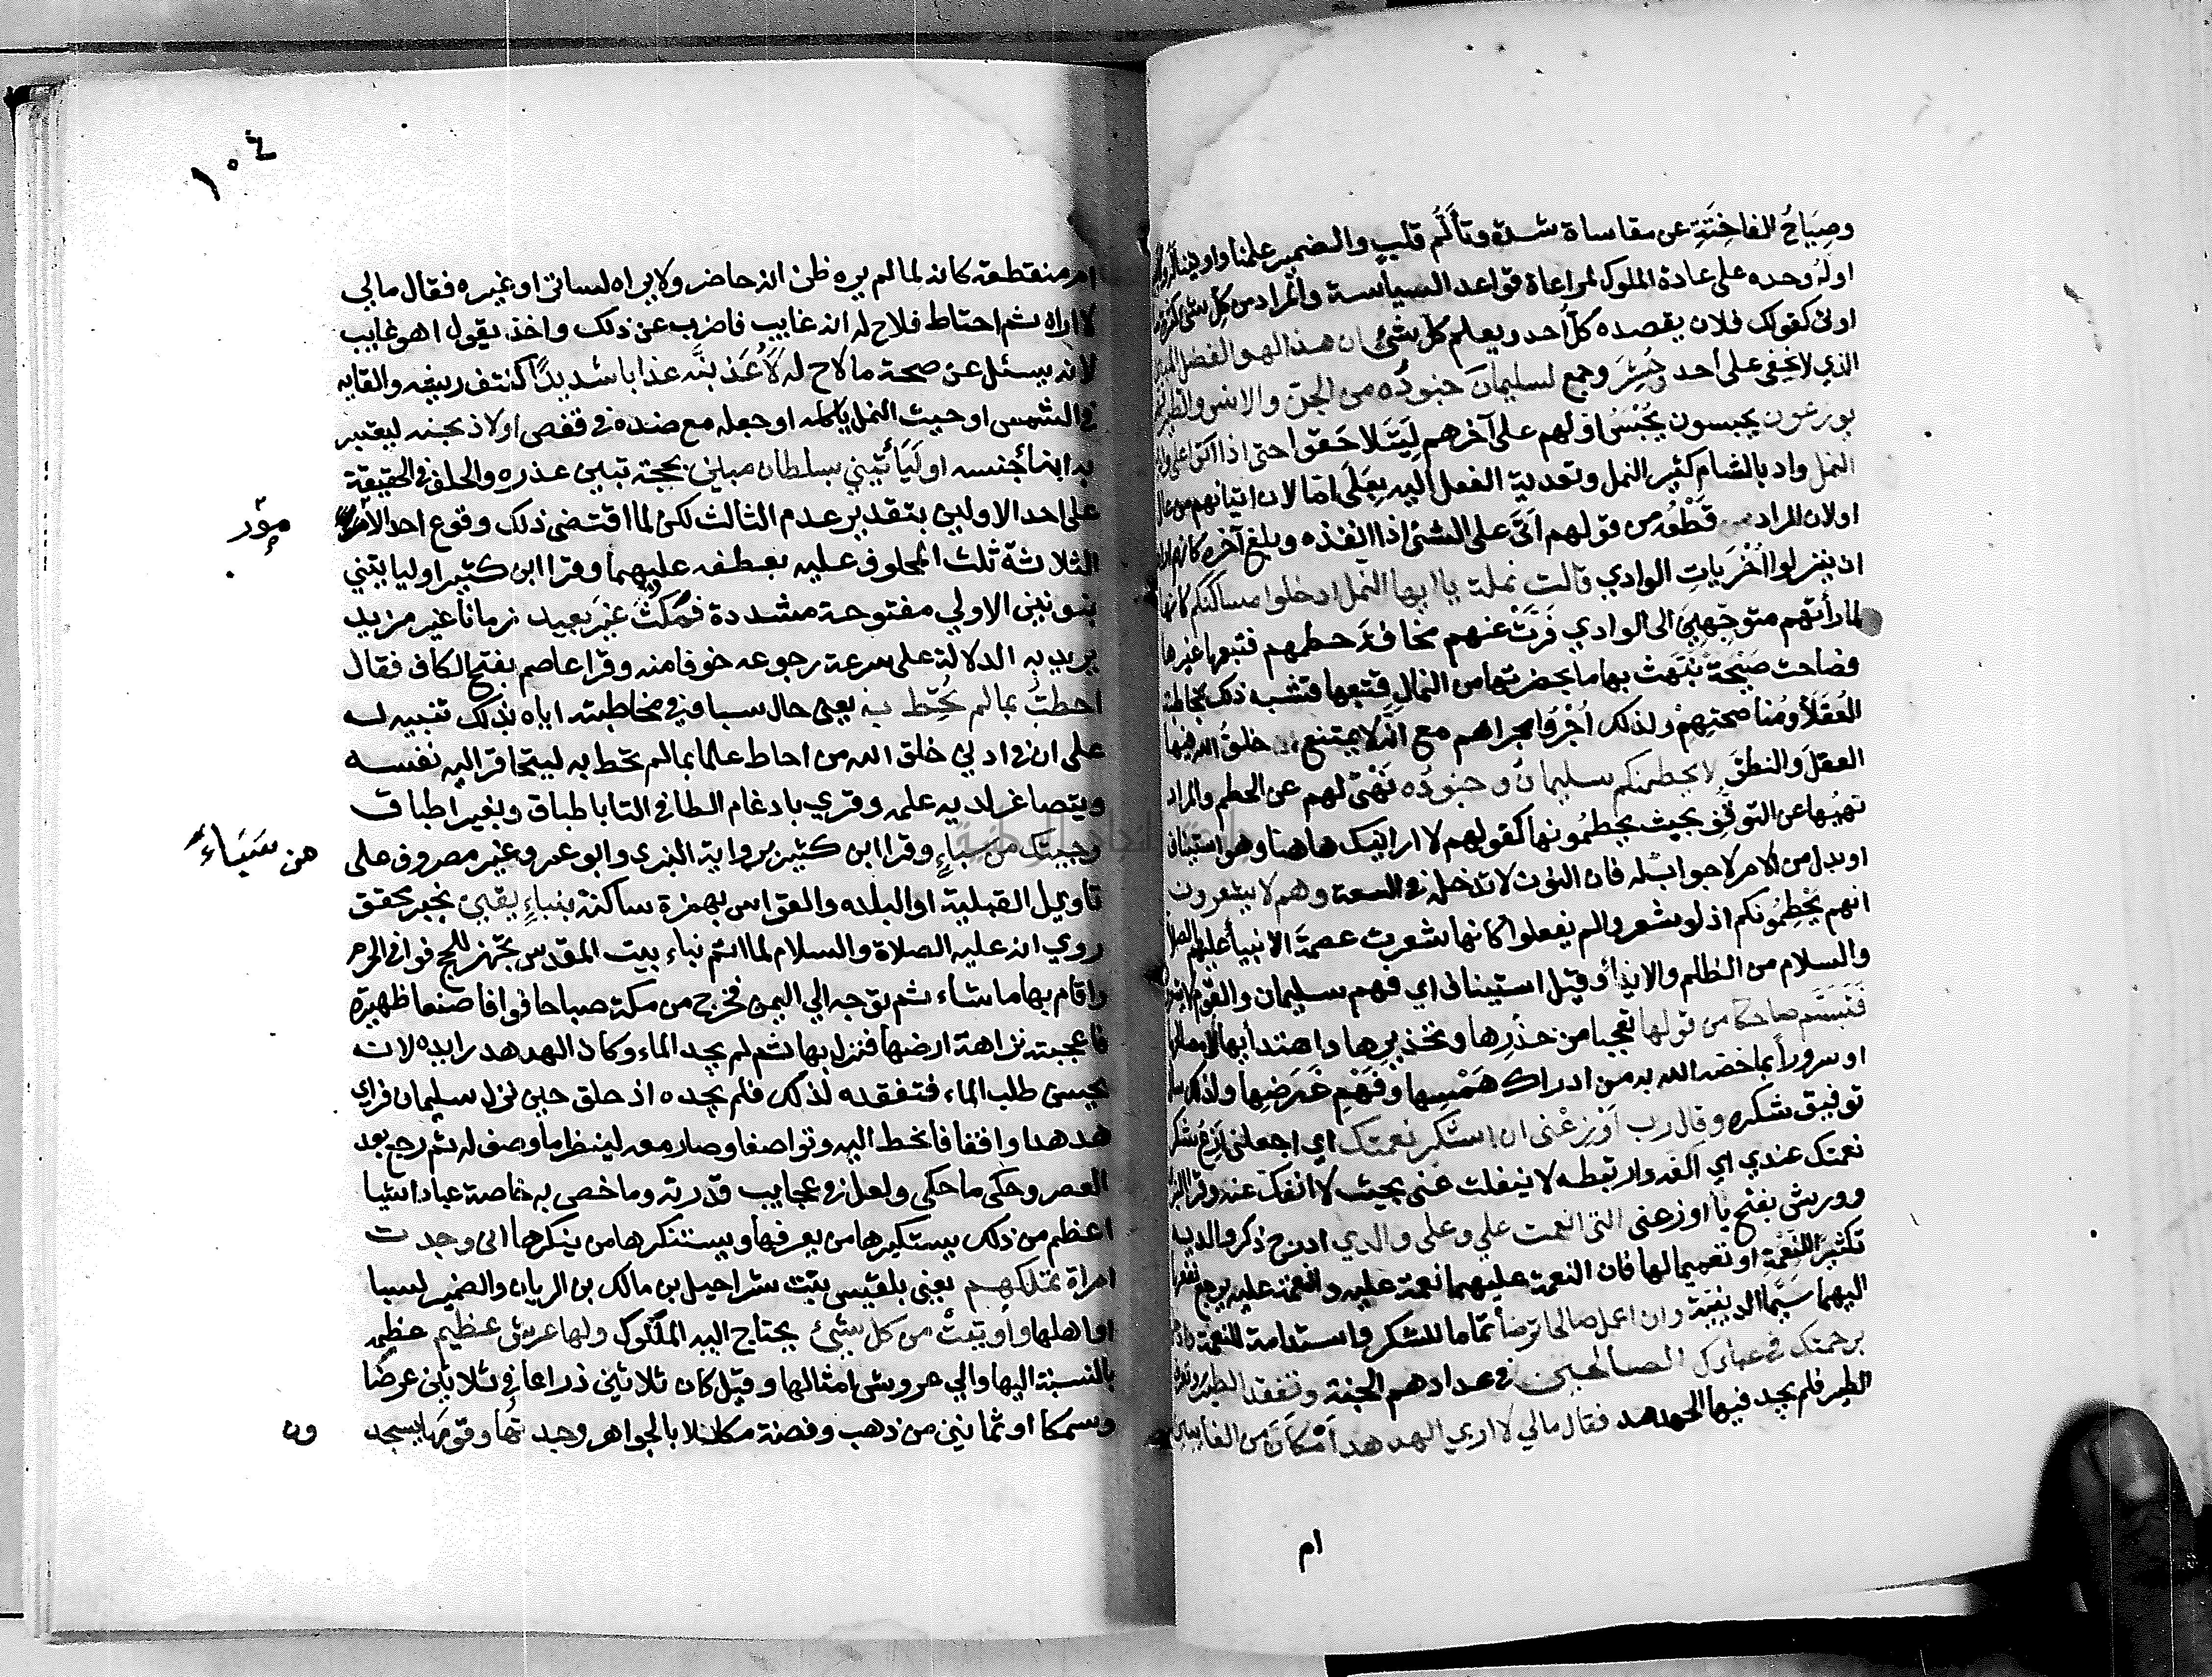 وصِيَاحُ الفاخِتَةِ عن مقاساة شدة وتألّم قلبٍ والضمير علمنا واوتينا له ولابيه
او لهُ وحده على عادة الملوك لمراعاة قواعد السياسة والمراد من كل شئ كثرة ما
اوتى كقولك فلان يقصده كل أحد ويعلم كل شئ ان هذا لهو الفضل المبين
الذي لا يخفى على أحد وحُشِرَ وجمع لسليمان جنودُه من الجن والانس والطير فهم
يوزعون يحبسون يُحْبَسُ اولهم على آخرهم ليَتَلاحَقوا حتى اذا اتوا على واد
النمل واد بالشام كثير النمل وتعدية الفعل اليه بِعَلَى امّا لان اتيانهم من عال
او لان المراد قَطْعُه من قولهم اتَى على الشئ اذا انفذه وبلغ آخره كانهم ارادوا
ان ينزلوا اُخْرَيَاتِ الوادي قالت نملة يا ايها النمل ادخلوا مساكنكم كانها
لما رأتهم متوجّهِينَ الى الوادي فَرّتْ عنهم مخافةَ حطمهم فتبعها غيرها
فصاحت صَيْحَةً نَبّهَتْ بها ما بحضرتها من النمال فتبعها فتشبه ذلك بمخاطبة
العُقَلأ ومُناصحتِهِمْ ولذلك اُجْرُوا مجراهم مع انّه لا يمتنع ان خلقَ الله فيها
العقلَ والنطقَ لا يحطمنكم سليمانُ وجنودُه نَهْىٌ لهم عن الحطم والمراد
نهيُها عن التوقّفِ بحيث يحطِمُونها كقولهم لا ارايتك هاهنا وهو استيناف
او بدل من الامر لا جواب له فان النون لا تدخله في السعة وهم لا يشعرون
انهم يَحْطِمُونكم اذ لو شعروا لم يفعلوا كانها شعرت عصمةَ الانبيأ عليهم الصلاة
والسلام من الظلم والايذأ وقيل استيناف اي فهم سليمان والقوم لا يشعرون
فَتَبَسَّم ضاحكا من قولها تعجبا من حذرِها وتحذيرِها واهتدأيها لمصالحها
او سروراً بما خصّه الله به من ادراك هَمْسِها وفَهْمِ غَرَضِها ولذلك سأل
توفيق شكره وقال رب اَوْزِعْنى ان اشكر نعمتك اي اجعلنى ازع شكر
نعمتك عندي اي اكفه وارتبطه لا ينفلت عنى بحيث لا انفك عنه وقرا البزي
وورش بفتح يأ اوزعنى التى انعمت علي وعلى والدي ادرج ذكر والديه
تكثيرا للنعمة او تعميما لها فان النعمة عليهما نعمة عليه والنعمة عليه يرجع نفعها
اليهما سيّما الدينيّة وان اعمل صالحا ترضأ تماما للشكر واستدامة للنعمة وادخلني
برحمتك في عبادك الصالحين في عدادهم الجنة وتفقد الطير وتعرف
الطير فلم يجد فيها الهدهد فقال مالي لا اري الهدهد أمْ كان من الغايبين
ام
١٠٤
ام منقطعة كانه لما لم يره ظن انه حاضر ولا يراه لساتر او غيره فقال مالي
لا اراه ثم احتاط فلاح له انه غايب فاضرب عن ذلك واخذ يقول اهو غايب
لانه يسئل عن صحة ما لاح له لَأُعَذّبَنَّه عذابا شديدًا كنتف ريشه والقايه
في الشمس او حيث النمل ياكله او جعله مع ضده في قفص أو لاذبحنه ليعتبر
به ابنأ جنسه او لَيَأْتيني بسلطان مبين بحجة تبين عذره والحلف في الحقيقة
على احد الاولين بتقدير عدم الثالث لكن لما اقتضى ذلك وقوع احد الأمور
الثلاثة ثلث المحلوف عليه بعطفه عليهما وقرا ابن كثير او لياتيننى
بنونين الاولي مفتوحة مشددة فَمَكُثَ غيرَ بعيد زمانا غير مزيد
يريد به الدلالة على سرعة رجوعه خوفا منه وقرا عاصم بفتح الكاف فقال
احطتُ بما لم تُحِط به يعني حال سبا وفي مخاطبته اياه بذلك تنبيه له
على ان في ادني خلق الله من احاط علما بما لم تحط به ليتحاقر اليه نفسه
ويتصاغر لديه علمه وقري بادغام الطا في التا باطباق وبغير اطباق
وجيتك من سباءٍ وقرا ابن كثير برواية البزي وابو عمرو غير مصروف على
تاويل القبيلة او البلدة والقواس بهمزة ساكنة بنباءٍ يقين بخبر محقق
روي انه عليه الصلاة والسلام لما اتم بناء بيت المقدس تجهز للحج فوافى الحرم
واقام بها ما شاء ثم توجه الي اليمن فخرج من مكة صباحا فوافا صنعا ظهيرة
فاعجبته نزاهة ارضها فنزل بها ثم لم يجد الماء وكان الهدهد رايده لانه
يحسن طلب الماء فتفقده لذلك فلم يجده اذ حلق حين نزل سليمان فراي
هدهدا واقفا فانحط اليه وتواصفا وصار معه لينظر ما وصف له ثم رجع بعد
العصر وحكى ما حكى ولعل في عجايب قدرته وما خص به خاصة عباده اشيا
اعظم من ذلك يستكبرها من يعرفها ويستنكرها من ينكرها انى وجدت
امراة تملكهم يعنى بلقيس بنت شراحيل بن مالك بن الريان والضمير لسبا
او اهلها وأوتيتْ من كل شئ يحتاج اليه الملوك ولها عرش عظيم عظمه
بالنسبة اليها والي عروش امثالها وقيل كان ثلاثين ذراعا في ثلاثين عرضًا
وسمكا او ثمانين من ذهب وفضة مكللا بالجواهر وجدتُها وقومَها يسجد
مؤر
من سَبَاءَ
ون